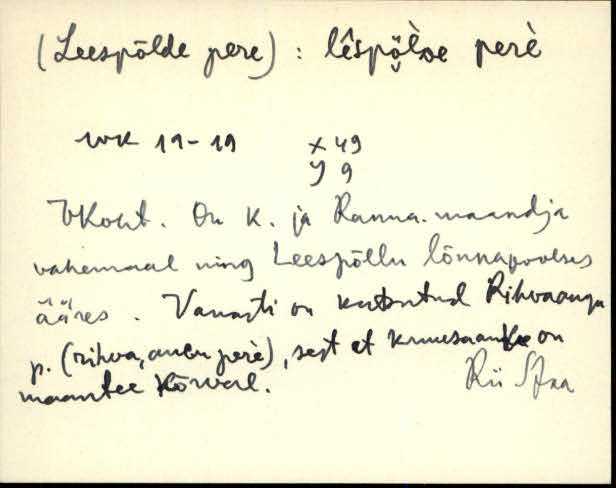 (Leespõlde pere) : lêspõ̭l̀dè perè
WK 19-19 x 49
y 9
VKoht. On K. ja Ranna-maantja
vahemaal ning Leespõllu lõunapoolses
ääres. Vanasti on kutsutud Rihvaaugu
p. (rihva, augu perè), sest et kruusaauk on
maantee kõrval. Rii